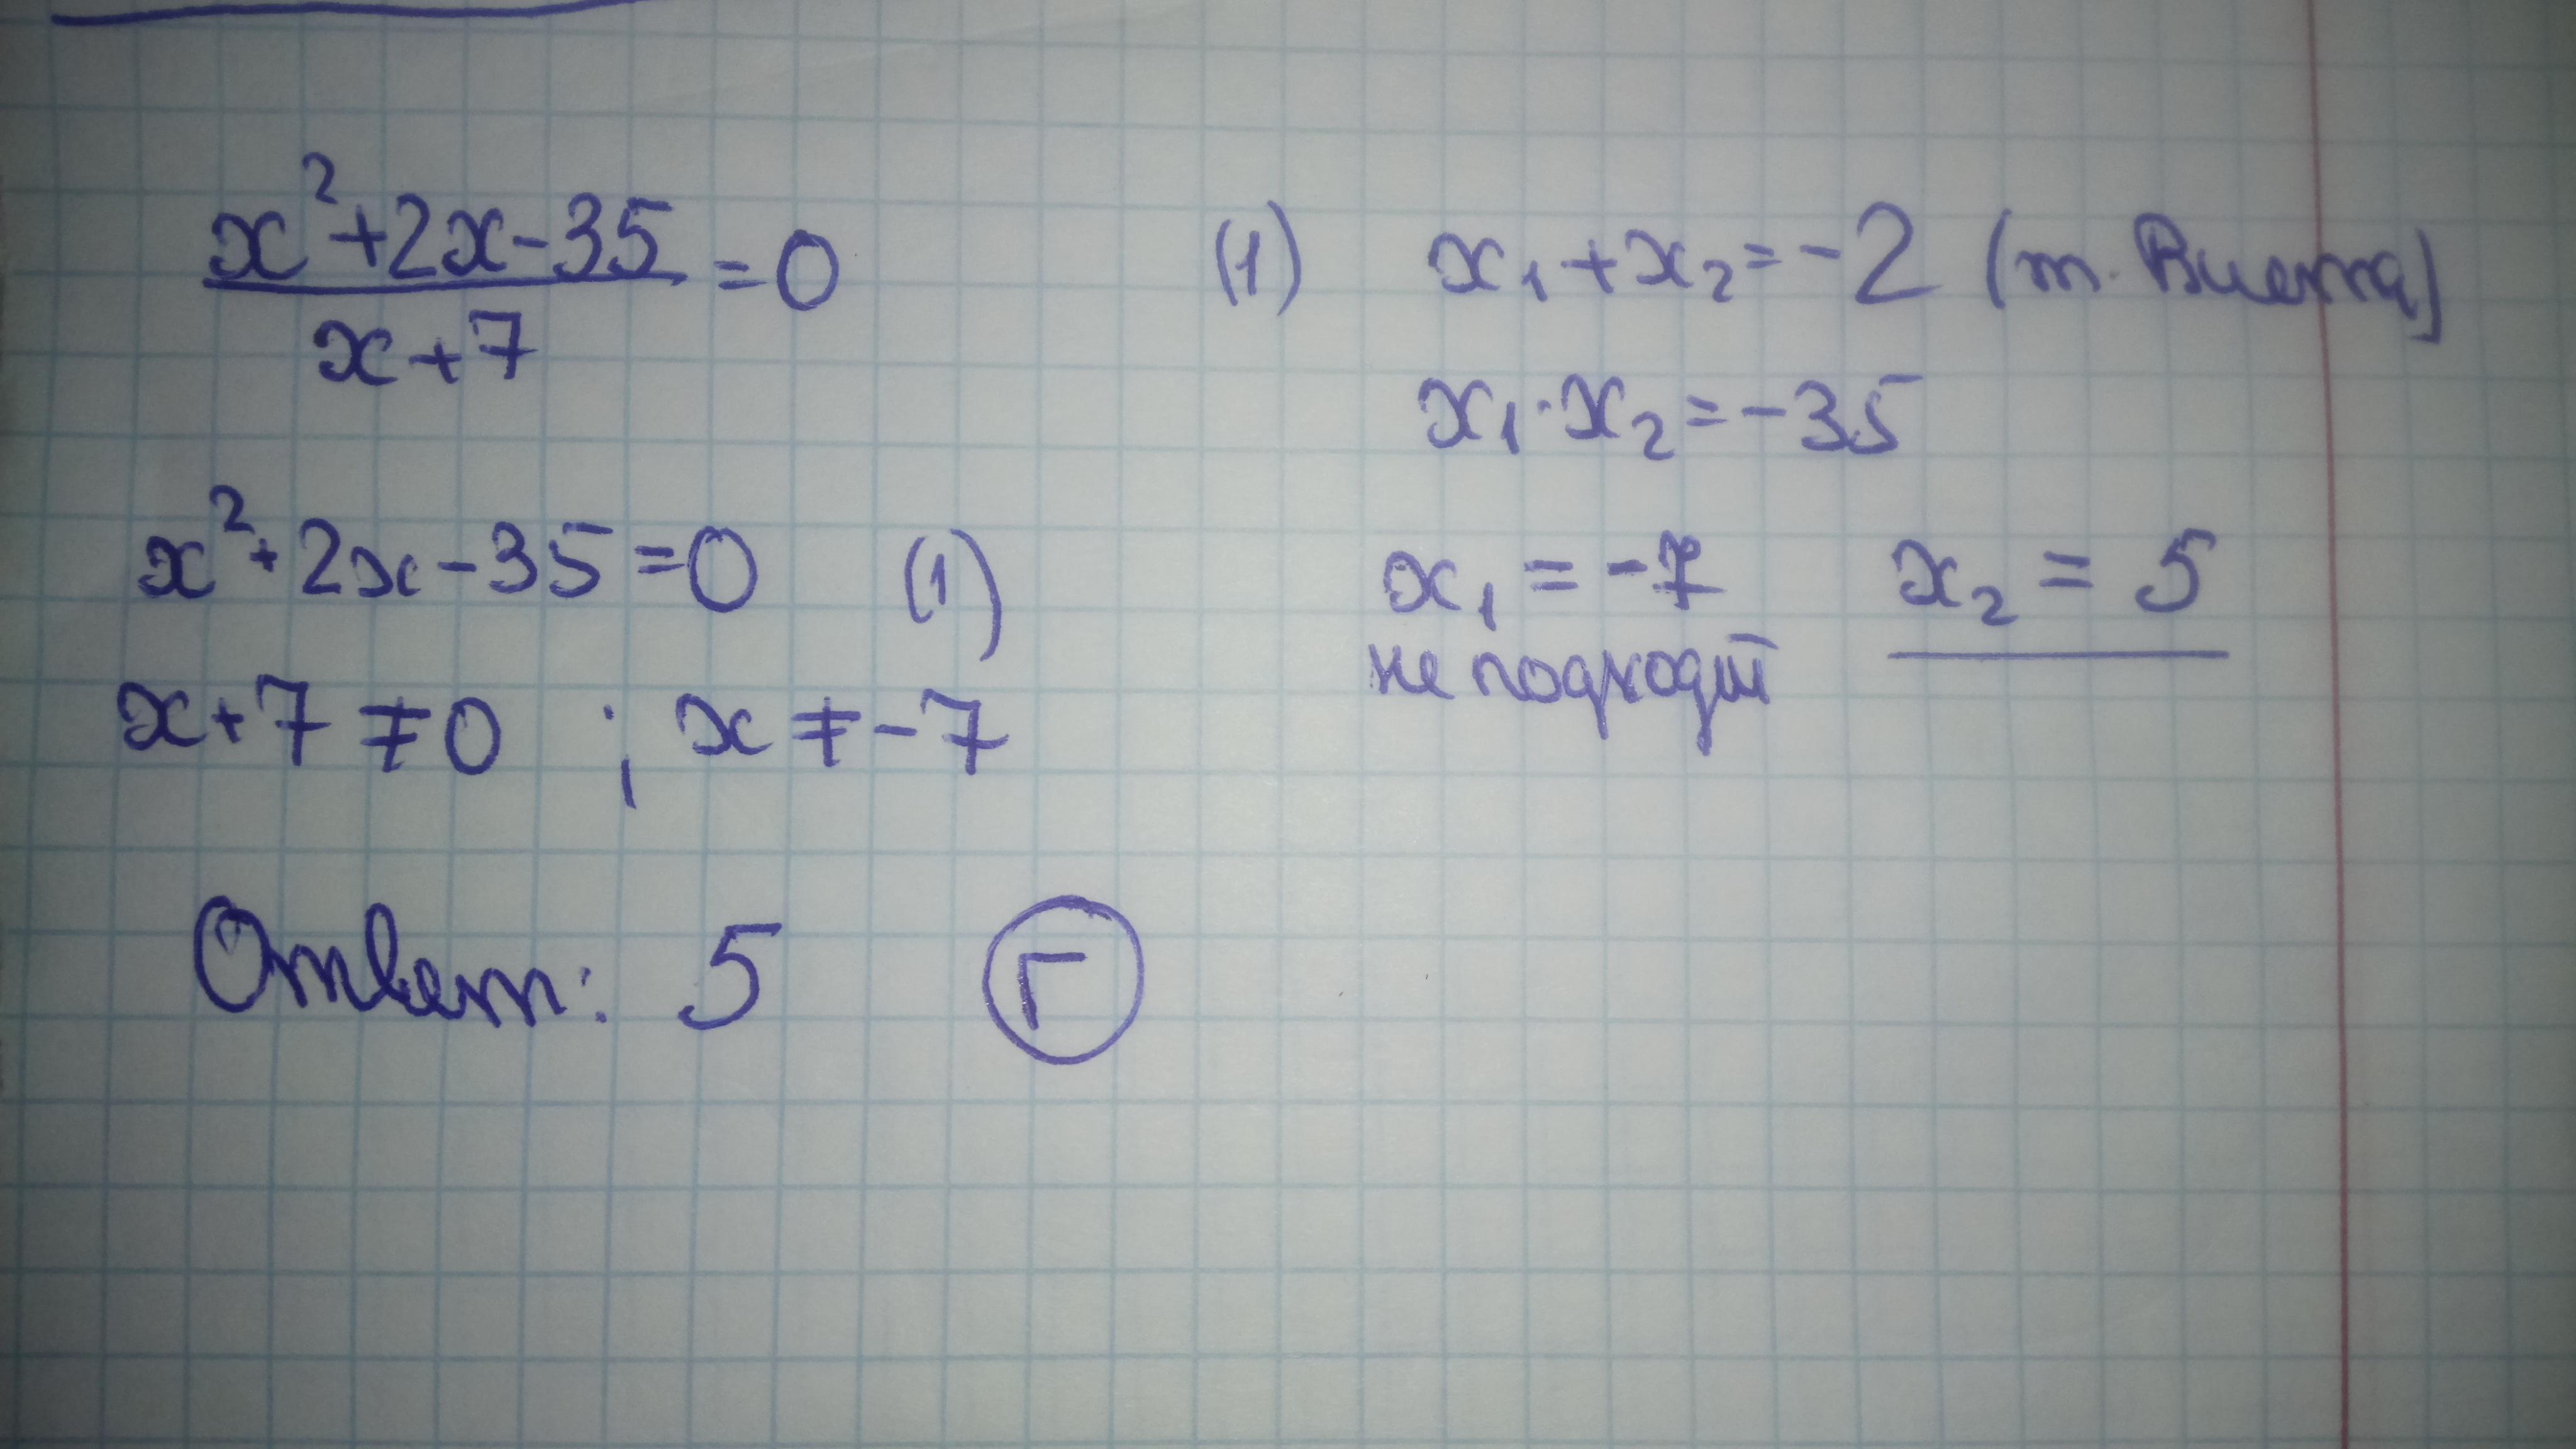 x²+2x-35
x+7
=0
x²+2x-35=0 (1)
x+7≠0 ; x≠-7
Ответ: 5 Г
(1) x₁+x₂=-2 (т. Виета)
x₁·x₂=-35
x₁=-7 x₂=5
не подходит